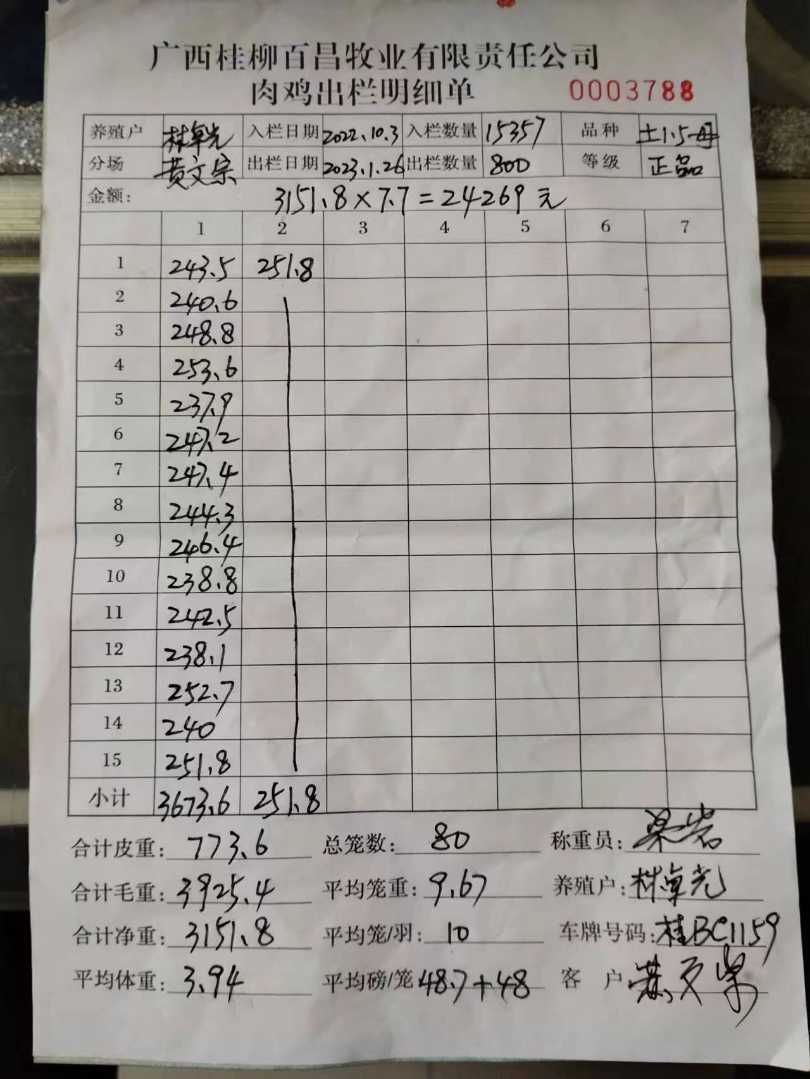 广西桂柳百昌牧业有限责任公司
肉鸡出栏明细单 0003788
养殖户 林卓光 入栏日期 2022.10.3 入栏数量 15357 品种 土1.5母
分场 黄文宗 出栏日期 2023.1.26 出栏数量 800 等级 正品
金额: 3151.8×7.7=24269元
1 2 3 4 5 6 7
1 243.5 251.8
2 240.6
3 248.8
4 253.6
5 237.9
6 247.2
7 247.4
8 244.3
9 246.4
10 238.8
11 242.5
12 238.1
13 252.7
14 240
15 251.8
小计 3673.6 251.8
合计皮重: 773.6 总笼数: 80 称重员:
合计毛重: 3925.4 平均笼重: 9.67 养殖户: 林卓光
合计净重: 3151.8 平均笼/羽: 10 车牌号码: 桂BC1159
平均体重: 3.94 平均磅/笼 48.7+48 客户